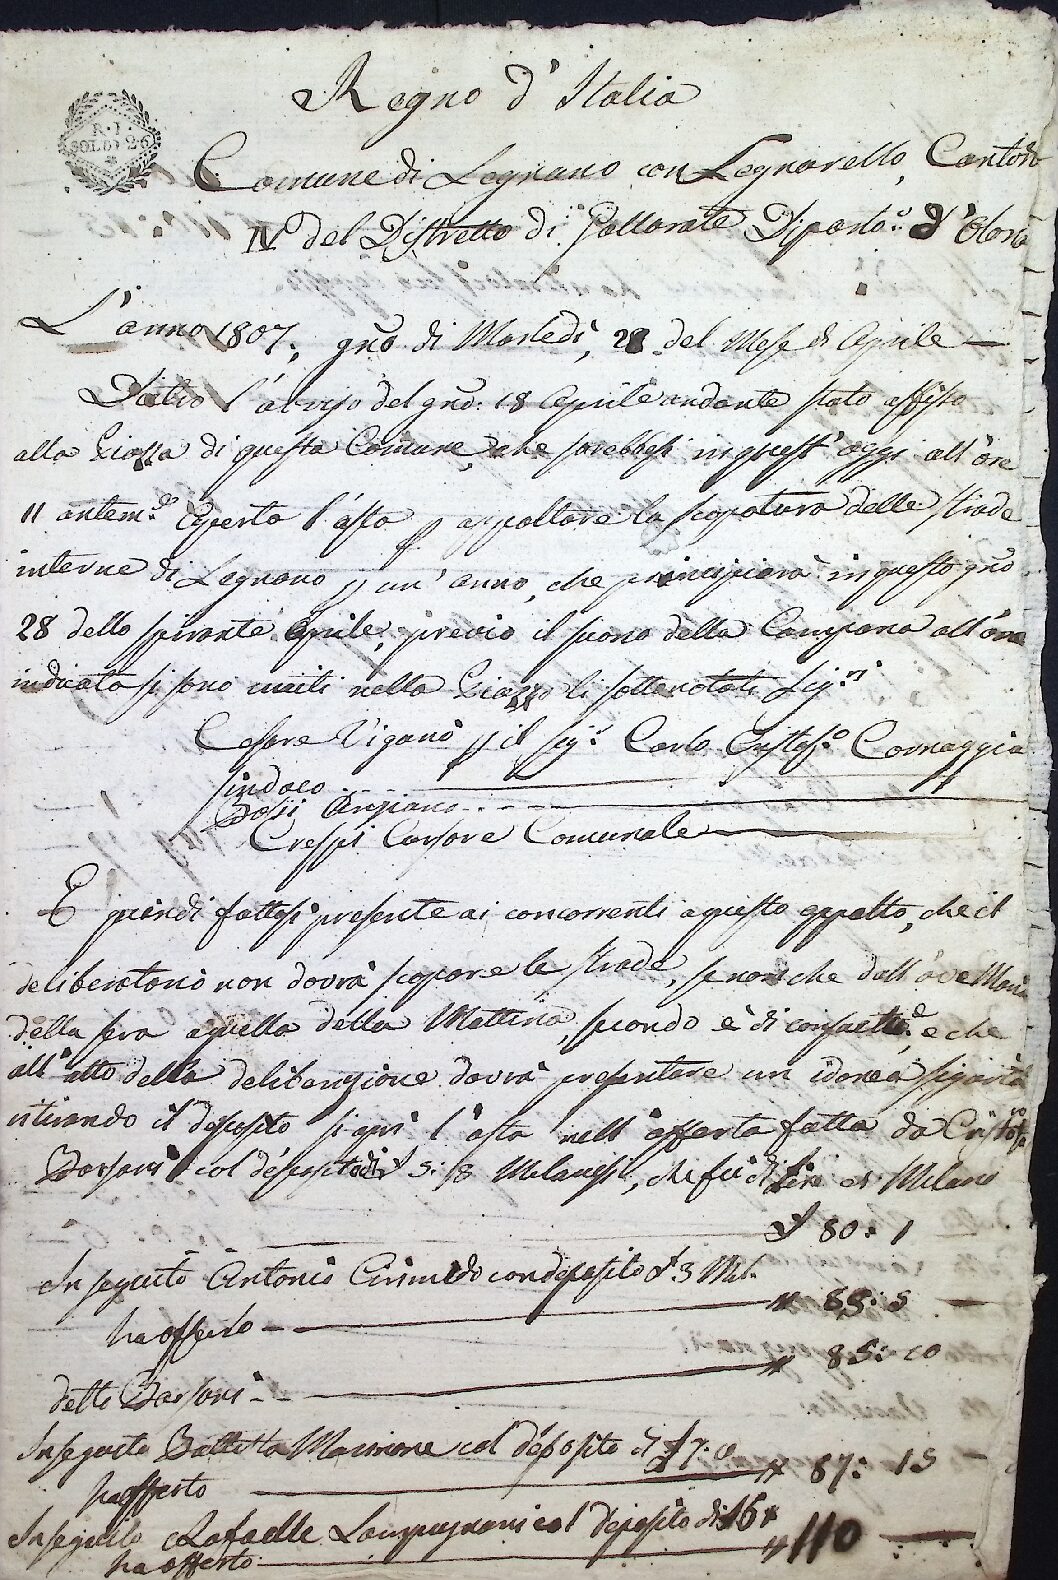 R. I.
SOLDI 26
Regno d'Italia
Comune di Legnano con Legnarello, Cantone
IV del Distretto di Gallarate Diparto. d'Olona
L'anno 1807, gno di Martedì, 28 del Mese di Aprile
Dietro l'avviso del gno: 18 Aprile andante stato affisso
alla Piazza di questa Comune, che sarebbesi in quest'oggi all'ore
11 antem.e aperta l'asta p appaltare la scopatura delle strade
interne di Legnano p un'anno, che principierà in questo gno
28 dello spirante Aprile, previo il suono della Campana all'ora
indicata si sono uniti nella Piazza li sottonotati Sig.ri
Cesare Viganò p il Sig.r Carlo Cristof.o Cornaggia
Sindaco
Bossi Anziano
Crespi Cursore Comunale
E quindi fattosi presente ai concorrenti a questo appalto, che il
deliberatario non dovrà scopare le strade, se non che dall'ave Maria
della sera a quella della Mattina, secondo è di consuet.e e che
all'atto della deliberazione dovrà presentare un idonea sigurtà
ritirando il deposito si aprì l'asta nell'offerta fatta da Cristofo
Borsani col deposito di £ 5: 8 Milanesi, che fù di Lire di Milano
£ 80: 1
In seguito Antonio condeposito £ 3 Mil.
ha offerto — " 85: 5
detto Borsani — " 85: 10
In seguito Battista col deposito di £ 7: 0
ha offerto — " 87: 15
In seguito Rafaelle Lampugnani col deposito di 16
ha offerto — " 110